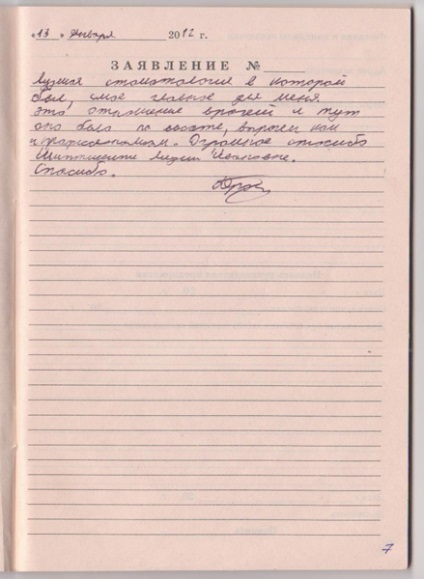 «13» января 2012 г.
ЗАЯВЛЕНИЕ №
Лучшая стоматология в которой
был, самое главное для меня
это отношение врачей и тут
оно было на высоте, впрочем как
и профессионализм. Огромное спасибо
Лидии Ивановне.
Спасибо.
7